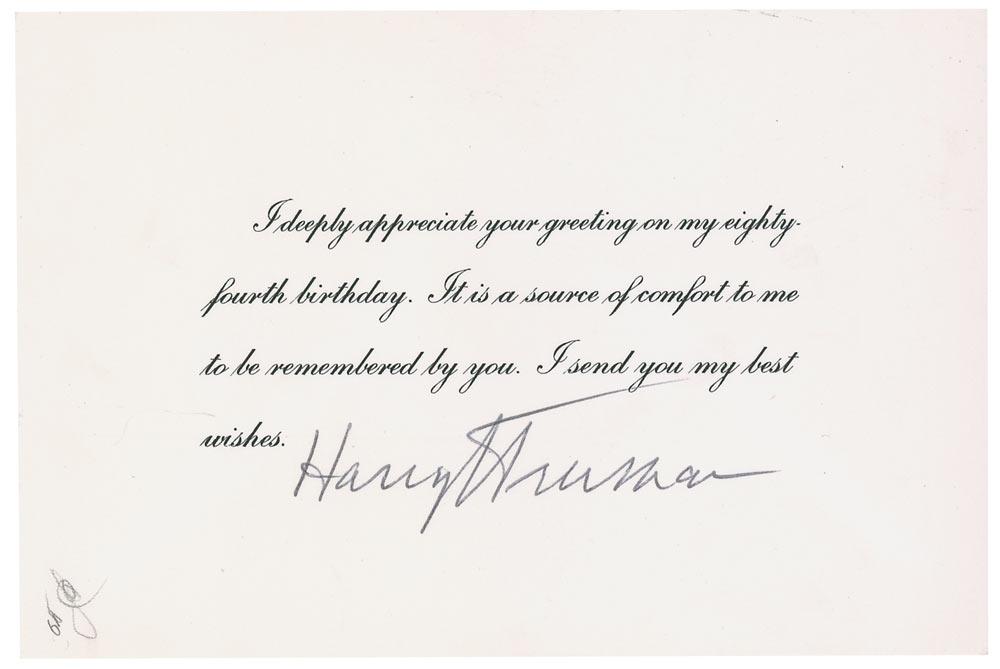 I deeply appreciate your greeting on my eighty-
fourth birthday. It is a source of comfort to me
to be remembered by you. I send you my best
wishes.
Harry Truman